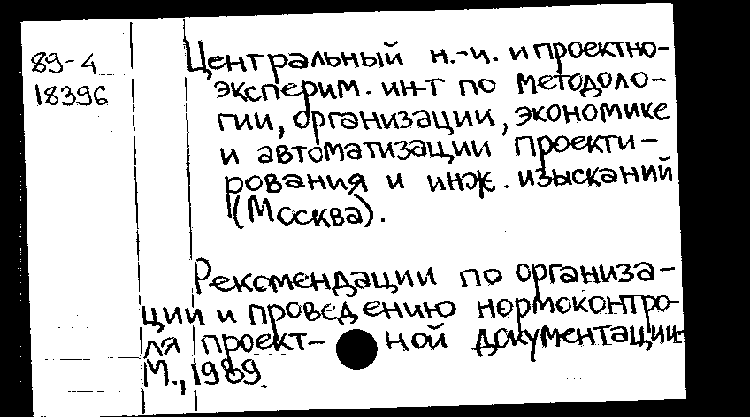 89-4
18396
Центральный н.-и. и проектно-
эксперим. ин-т по методоло-
гии, организации, экономике
и автоматизации проекти-
рования и инж. изысканий
(Москва).
Рекомендации по организа-
ции и проведению нормоконтро-
ля проект- ной документации.
М., 1989